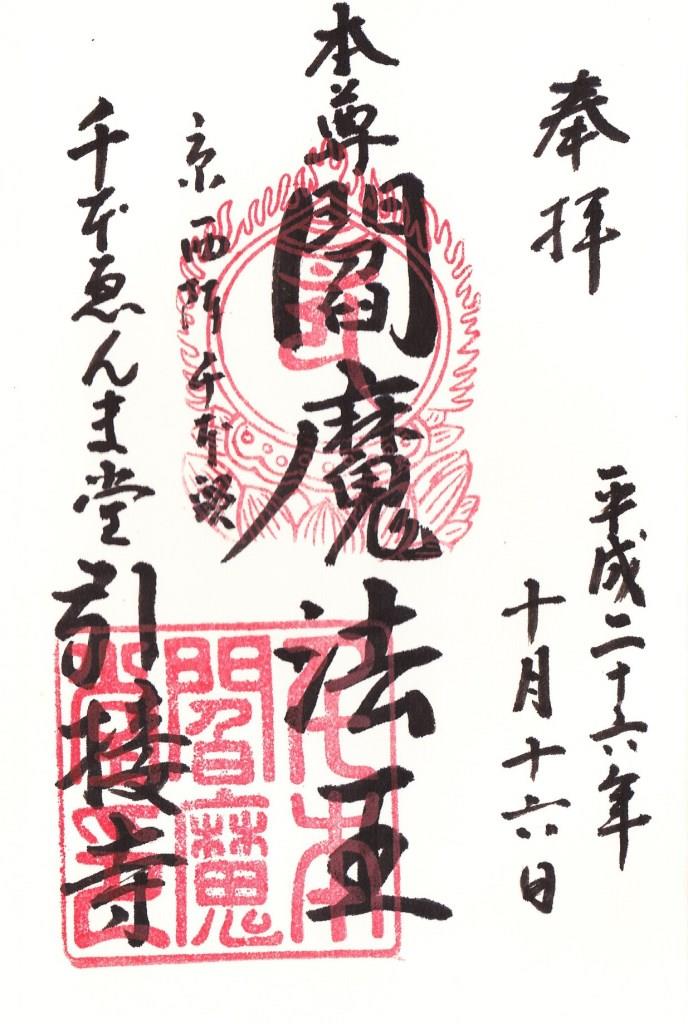 奉拝
平成二十六年
十月十六日
本尊 閻魔法王
京 西陣 千本
千本ゑんま堂 引接寺
千本
閻魔
堂印